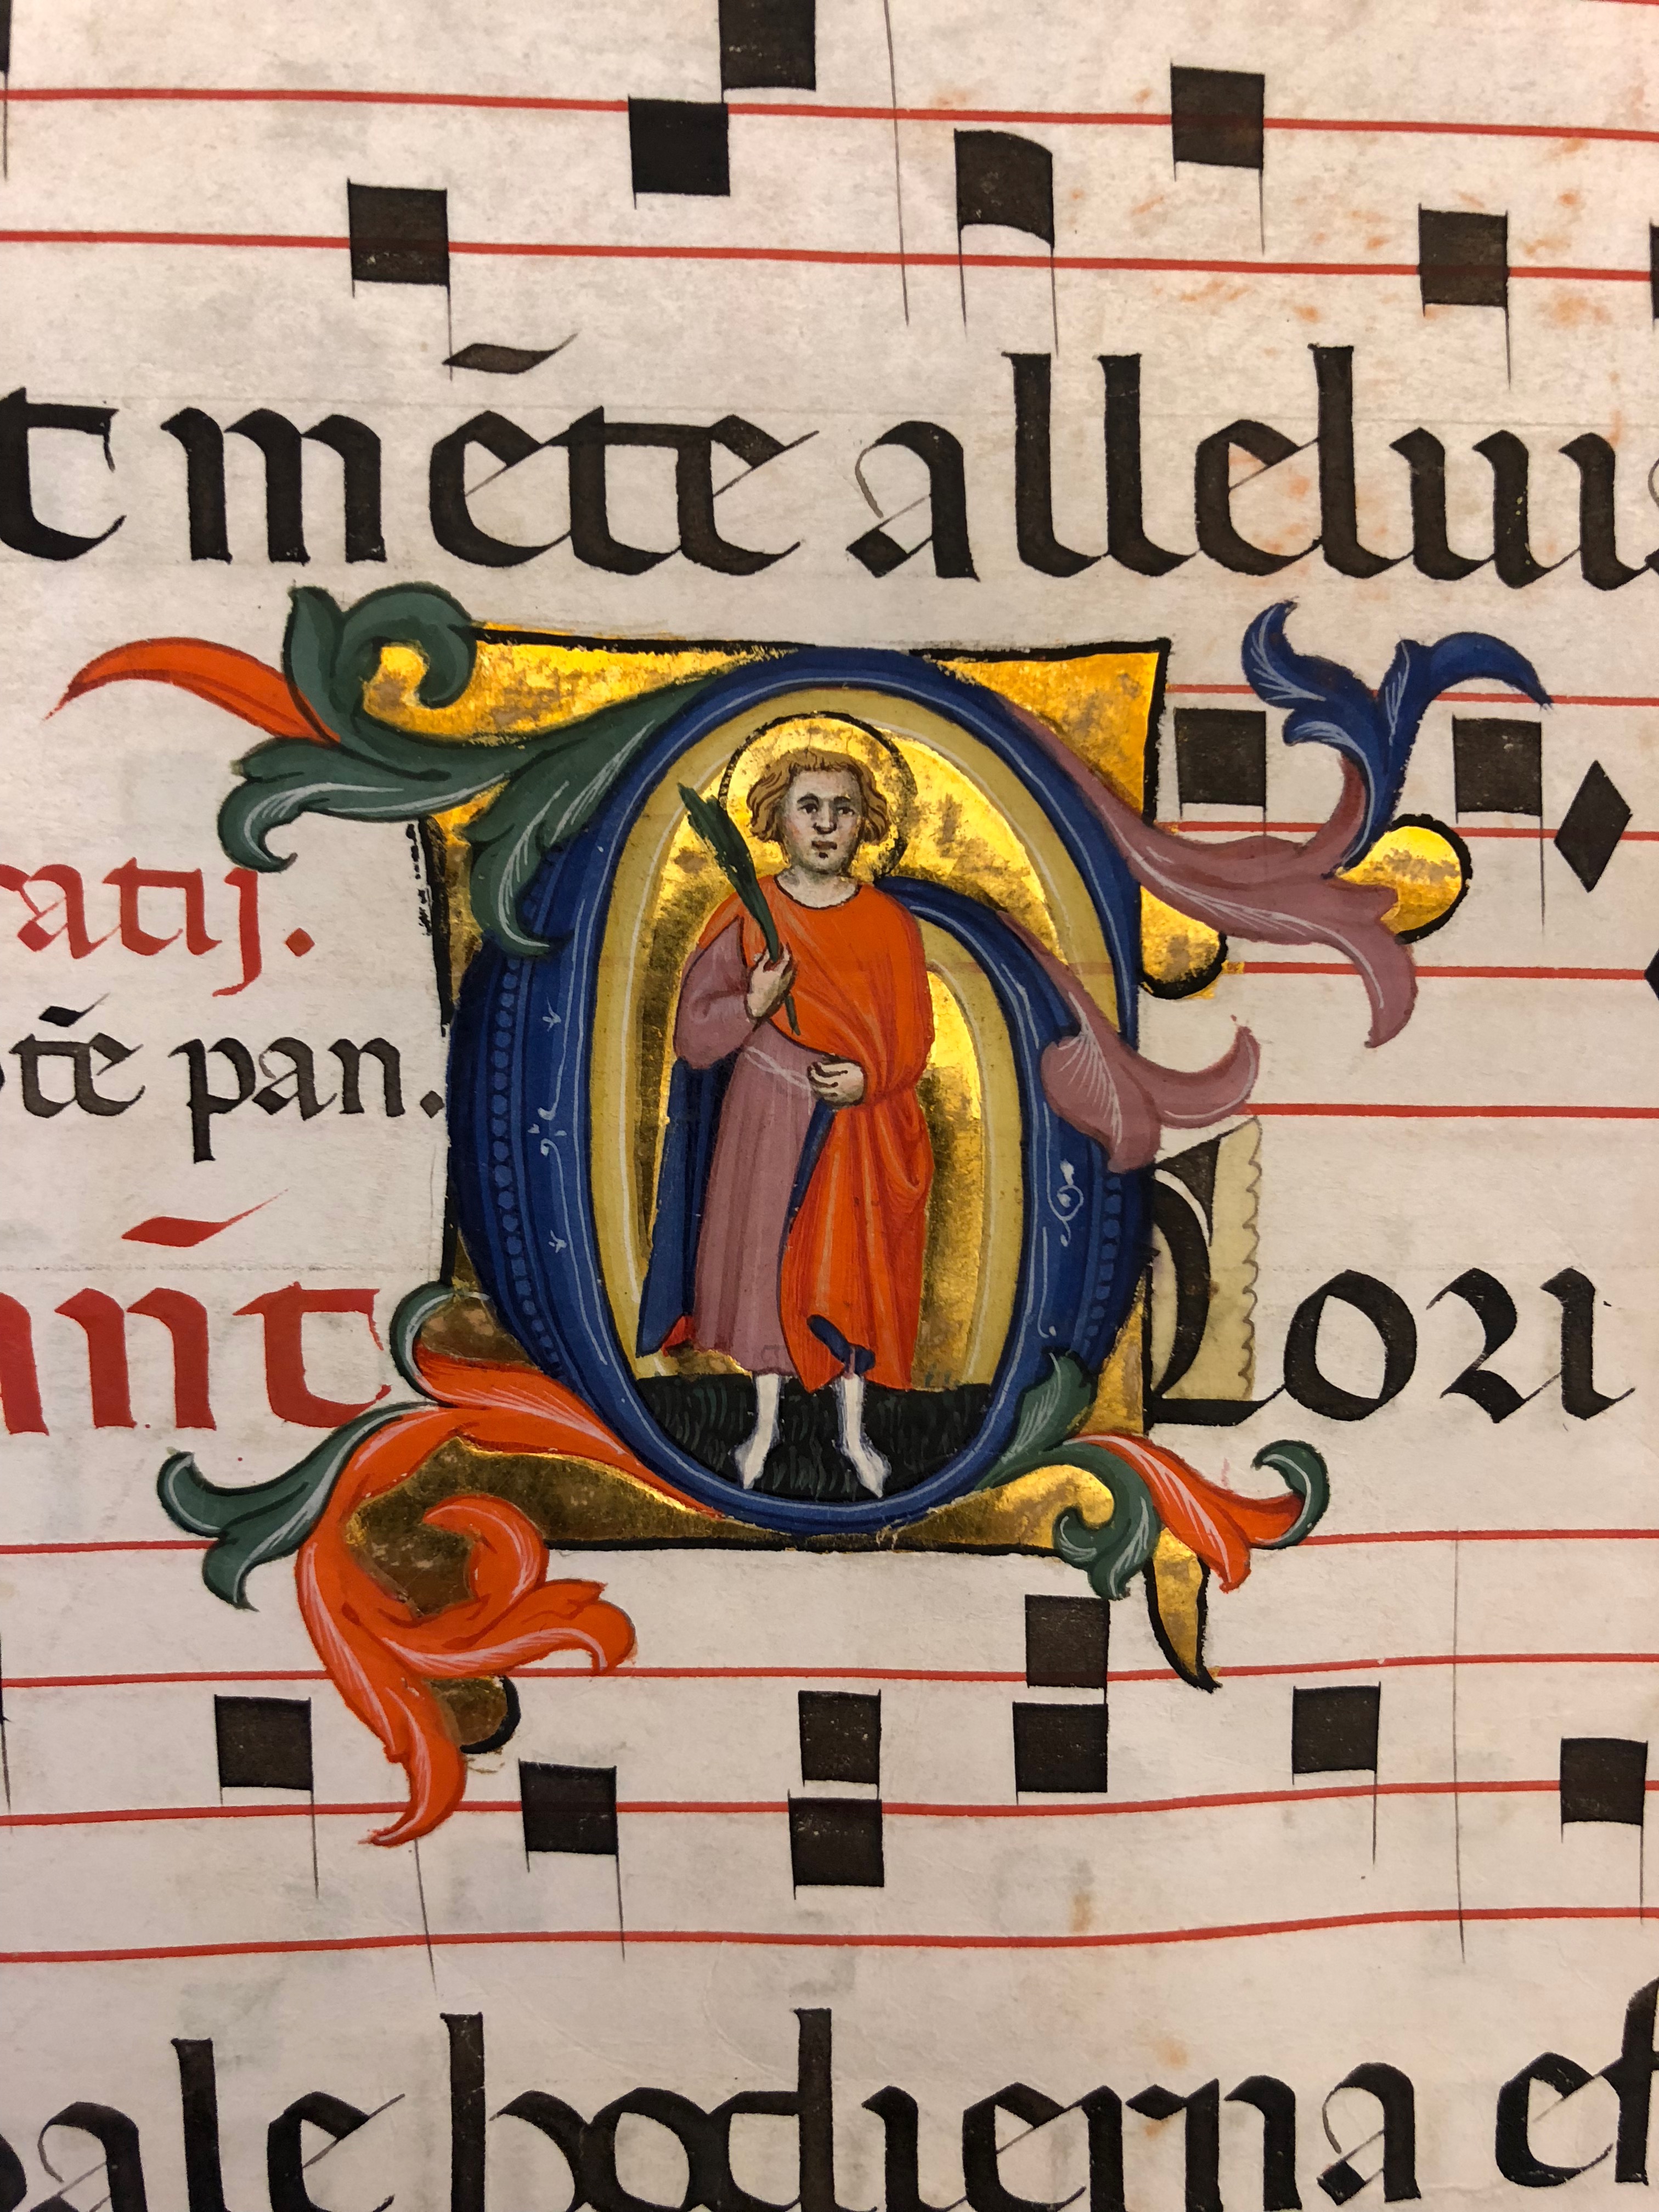 t mēte allelui
ratij.
otē pan.
anĩt Glori
ale hodierna ef